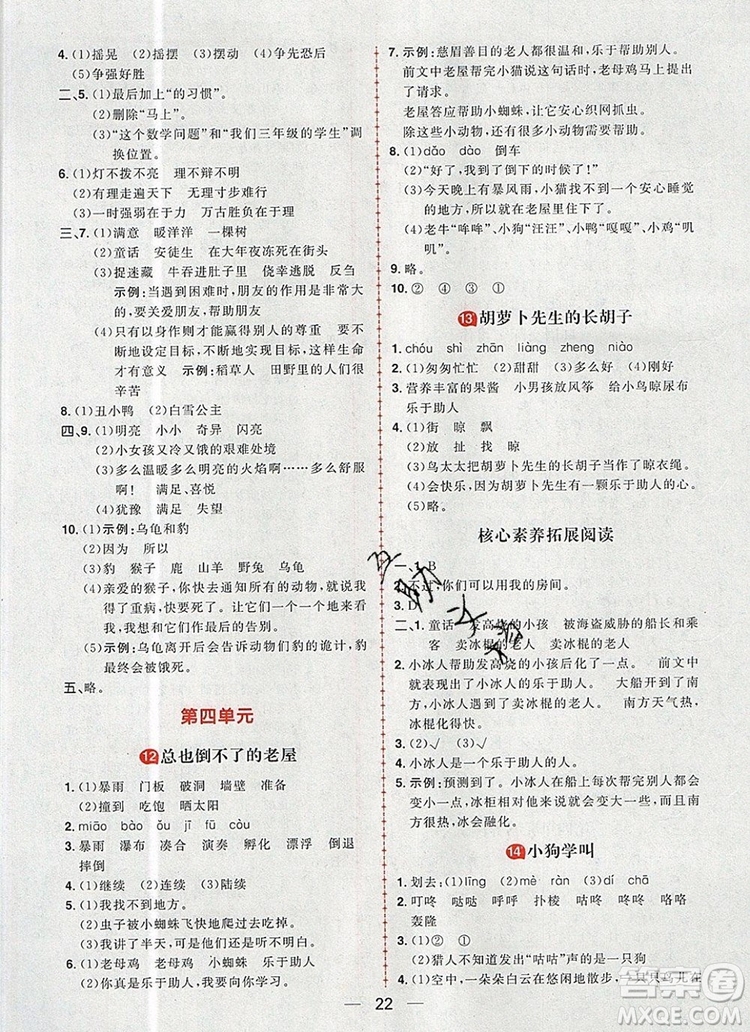 4. (1)摇晃 (2)摇摆 (3)摆动 (4)争先恐后
(5)争强好胜
二、5. (1)最后加上“的习惯”。
(2)删除“马上”。
(3)“这个数学问题”和“我们三年级的学生”调
换位置。
6. (1)灯不拨不亮 理不辩不明
(2)有理走遍天下 无理寸步难行
(3)一时强弱在于力 万古胜负在于理
三、7. (1)满意 暖洋洋 一棵树
(2)童话 安徒生 在大年夜冻死在街头
(3)捉迷藏 牛吞进肚子里 侥幸逃脱 反刍
示例:当遇到困难时,朋友的作用是非常大
的,要关爱朋友,珍惜朋友,朋友会给我们
帮助
(4)只有以身作则才能赢得别人的尊重 要不
断地设定目标,不断地实现目标,这样生命
才有意义 示例:稻草人 田野里的人们很
辛苦
8. (1)丑小鸭 (2)白雪公主
四、9. (1)明亮 小小 奇异 闪亮
(2)小女孩又冷又饿的艰难处境。
(3)多么温暖多么明亮的火焰啊……多么舒服
啊! 满足、喜悦
(4)犹豫 满足 失望
10. (1)示例:乌龟和豹
(2)因为 所以
(3)豹 猴子 鹿 山羊 野兔 乌龟
(4)亲爱的猴子,你快去通知所有的动物,我很
想念大家,在临死前想见大家一面,请大家
都来我的山洞,让我作最后的告别。
(5)乌龟离开后会告诉动物们豹的诡计,豹
最终会被饿死。
五、略。
第四单元
12 总也倒不了的老屋
1. (1)暴雨 门板 破洞 墙壁 准备
(2)撞到 吃饱 晒太阳
2. miāo bào ǒu zhī fū cù
3. 暴雨 瀑布 凑合 演奏 孵化 漂浮 倒退
摔倒
4. (1)继续 (2)连续 (3)陆续
5. (1)我找不到地方。
(2)虫子被小蜘蛛飞快地爬过去吃掉。
(3)我讲了半天,可是他们就是不明白。
6. (1)老母鸡 (2)小蜘蛛 (3)老母鸡
7. 示例:慈眉善目的老人都很温和,乐于帮助别人。
前文中老屋帮完小猫说这句话时,老母鸡马上来提出
了请求。
老屋答应帮助小蜘蛛,让它安心织网抓虫。
除了这些小动物,老屋还会帮助更多的小动物。
8. (1)dǎo dào 倒车
(2)“好了,我到了倒下的时候了!”
(3)今天晚上有暴风雨,小猫找不到一个安心睡觉
的地方,所以就在老屋里住下了。
(4)老牛“哞哞”,小狗“汪汪”,小鸭“嘎嘎”,小鸡“叽
叽”。
9. 略。
10. ② ④ ③ ①
13 胡萝卜先生的长胡子
1. chóu shì zhān liàng zheng niào
2. (1)匆匆忙忙 (2)甜甜 (3)够长 (4)刚好
3. 营养丰富的果酱 小男孩放风筝 给小鸟晾尿布
乐于助人
4. (1)街 晾 飘
(2)放 扯 找 晾
(3)鸟太太把胡萝卜先生的长胡子当作了晾衣绳。
(4)会快乐。因为胡萝卜先生有一颗乐于助人的心。
(5)略。
核心素养拓展阅读
一、1. B
2. 不过,你们可以用我的房间。
3. D
二、1. 童话 发高烧的小孩 被海盗威胁的船长和乘
客 卖冰棍的老人 卖冰棍的老人
2. 小冰人帮助发高烧的小孩后化了一点。 前文中
就表现出了小冰人的乐于助人。 大船开到了南
方,小冰人遇到了卖冰棍的老人。 南方天气热,
冰棍化得快。
3. (2)√ (3)√
4. 小冰人是一个乐于助人的人。
5. 示例:预测到了。小冰人在船上每次帮完别人都会
变小一点,冰柜相对于现在的他就会变大一些,所以
能装得下他。冰柜很热,所以需要开着门,但这样
冰会融化。
14 小狗学叫
1. 划去:(1)lǐng (2)mè rán (3)dí chā
2. 叮咚 哒哒 呼呼 扑棱 咕咕 咚咚 咯咯
轰隆
3. (1)④ ③ ② ①
(2)猎人不知道发出“咕咕”声的是一只狗
4. (1)空中,一朵朵白云在悠闲地散步,一只只鸟儿在
22
答案圈
MXQE.COM